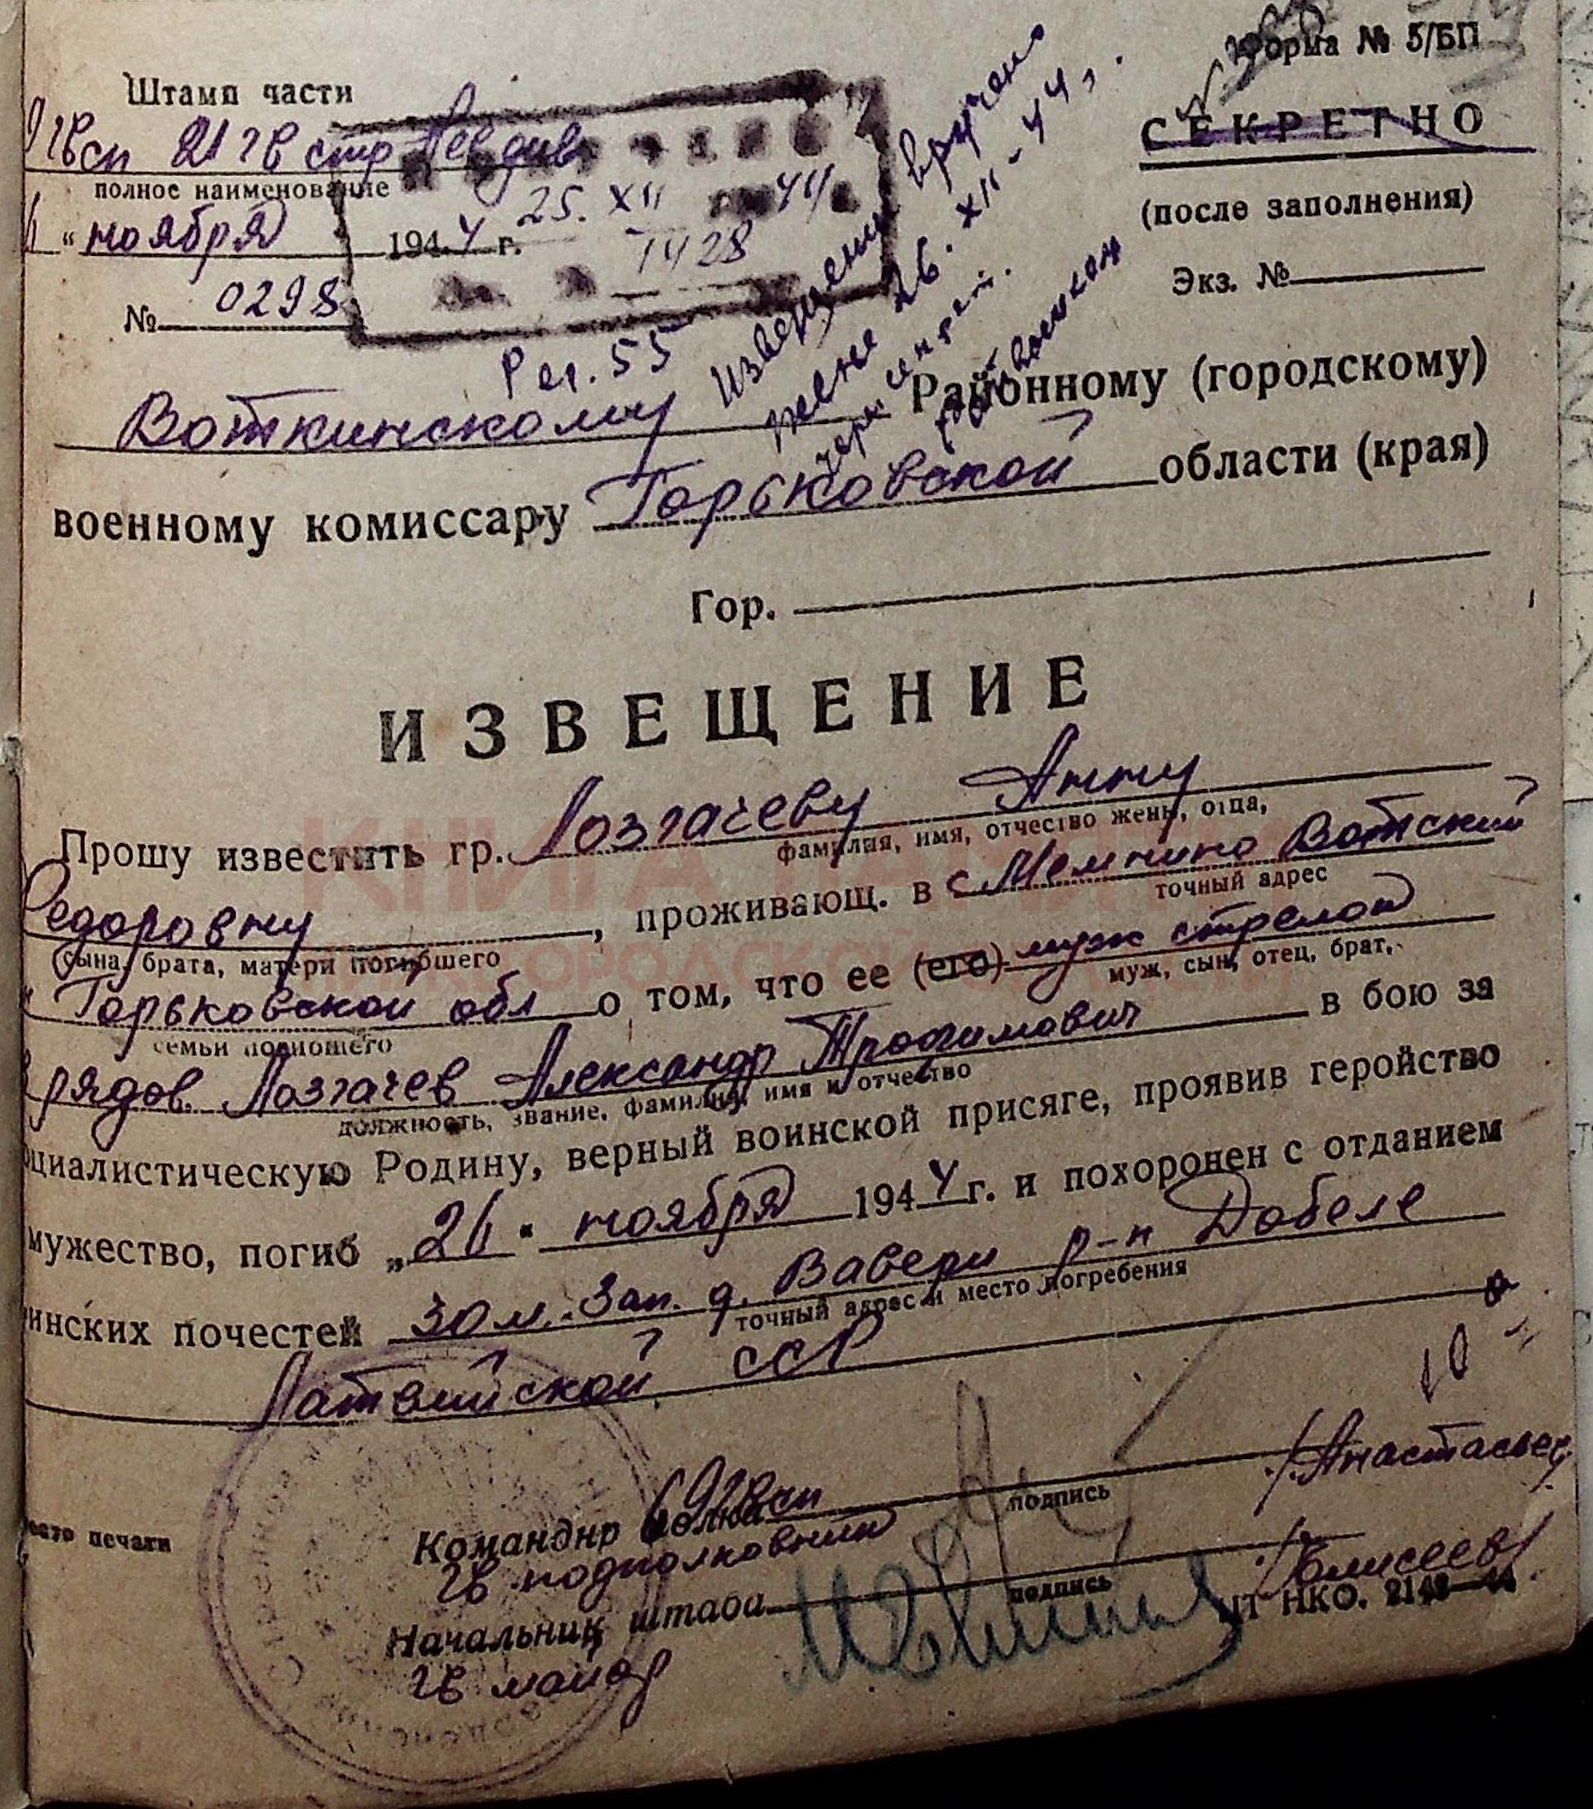 Форма № 5/БП
Штамп части
СЕКРЕТНО
гвсп 21 гв стр Невдив
полное наименование
(после заполнения)
25. XII 44
" ноября 1944 г.
1428
Экз. №
№ 0298
Рег. 55
Извещение вручено
жене 26. XII-44,
Воткинскому Районному (городскому)
военному комиссару Горьковской области (края)
Гор.
ИЗВЕЩЕНИЕ
Прошу известить гр. Лозгачеву Анну
фамилия, имя, отчество жены, отца,
Федоровну, проживающ. в с Мемнино Вотский
точный адрес
сына, брата, матери погибшего
Горьковской обл о том, что ее (его) муж стрелок
муж, сын, отец, брат,
семьи погибшего
рядов. Лозгачев Александр Трофимович в бою за
должность, звание, фамилия, имя и отчество
оциалистическую Родину, верный воинской присяге, проявив геройство
мужество, погиб „26" ноября 1944 г. и похоронен с отданием
инских почестей 30 м. Зап. д. Вавери р-н Добеле
точный адрес и место погребения
Латвийской ССР
10
Командир полка 69 гвсп /Анастасьев
подпись
есто печати
гв подполковник
Начальник штаба /Елисеев/
подпись
гв майор
НКО. 2143—44